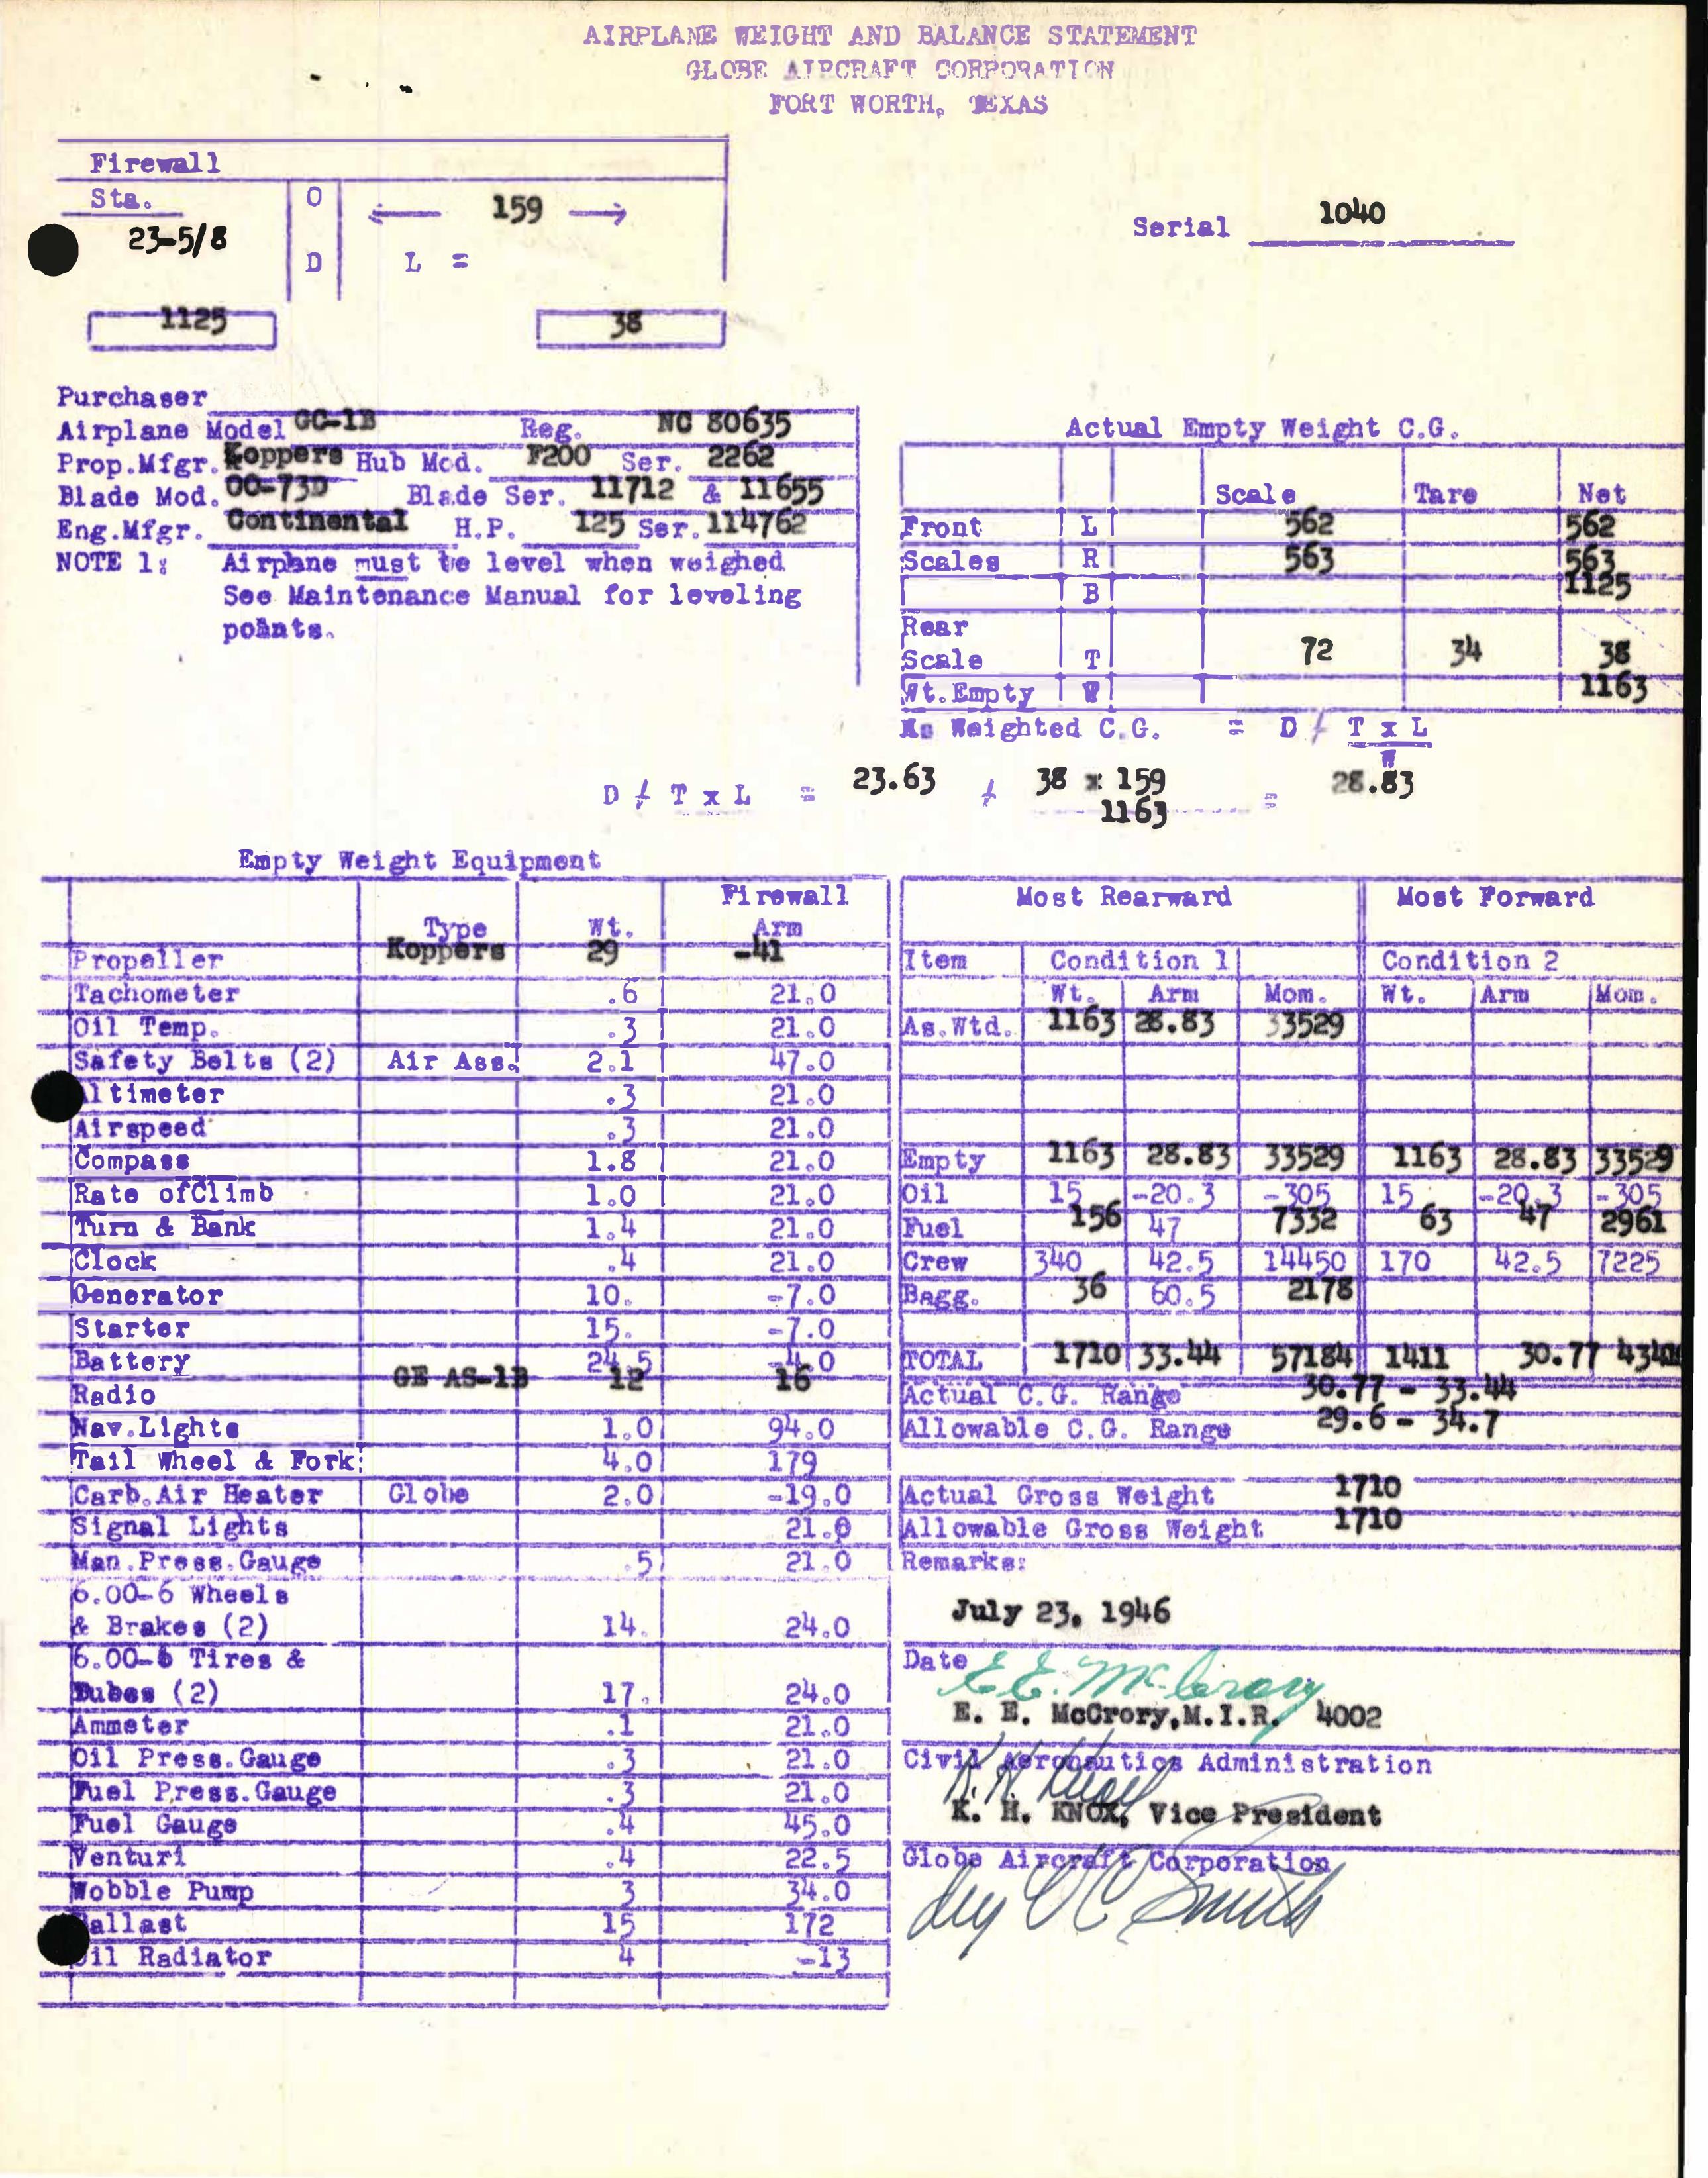 AIRPLANE WEIGHT AND BALANCE STATEMENT
GLOBE AIRCRAFT CORPORATION
FORT WORTH, TEXAS
Firewall
Sta. O ← 159 →
23-5/8 D L =
1125 38
Serial 1040
Purchaser
Airplane Model GC-1B Reg. NC 80635
Prop.Mfgr. Koppers Hub Mod. F200 Ser. 2262
Blade Mod. 00-73D Blade Ser. 11712 & 11655
Eng.Mfgr. Continental H.P. 125 Ser. 114762
NOTE 1: Airplane must be level when weighed
See Maintenance Manual for leveling
points.
Actual Empty Weight C.G.
Scale Tare Net
Front L 562 562
Scales R 563 563
B 1125
Rear
Scale T 72 34 38
Wt.Empty W 1163
As Weighted C.G. = D / T x L
W
D / T x L = 23.63 / 38 x 159 = 28.83
1163
Empty Weight Equipment
Type Wt. Firewall Arm
Propeller Koppers 29 -41
Tachometer .6 21.0
Oil Temp. .3 21.0
Safety Belts (2) Air Ass. 2.1 47.0
Altimeter .3 21.0
Airspeed .3 21.0
Compass 1.8 21.0
Rate ofClimb 1.0 21.0
Turn & Bank 1.4 21.0
Clock .4 21.0
Generator 10. -7.0
Starter 15. -7.0
Battery 24.5 -4.0
Radio GE AS-1B 12 16
Nav.Lights 1.0 94.0
Tail Wheel & Fork 4.0 179
Carb.Air Heater Globe 2.0 -19.0
Signal Lights 21.0
Man.Press.Gauge .5 21.0
6.00-6 Wheels
& Brakes (2) 14. 24.0
6.00-6 Tires &
Tubes (2) 17. 24.0
Ammeter .1 21.0
Oil Press.Gauge .3 21.0
Fuel Press.Gauge .3 21.0
Fuel Gauge .4 45.0
Venturi .4 22.5
Wobble Pump 3 34.0
Ballast 15 172
Oil Radiator 4 -13
Most Rearward Most Forward
Item Condition 1 Condition 2
Wt. Arm Mom. Wt. Arm Mom.
As.Wtd. 1163 28.83 33529
Empty 1163 28.83 33529 1163 28.83 33529
Oil 15 -20.3 -305 15 -20.3 -305
Fuel 156 47 7332 63 47 2961
Crew 340 42.5 14450 170 42.5 7225
Bagg. 36 60.5 2178
TOTAL 1710 33.44 57184 1411 30.77
Actual C.G. Range 30.77 - 33.44
Allowable C.G. Range 29.6 - 34.7
Actual Gross Weight 1710
Allowable Gross Weight 1710
Remarks:
July 23, 1946
Date E E. McCrory
E. E. McCrory,M.I.R. 4002
Civil Aeronautics Administration
K. H. Knox
K. H. KNOX, Vice President
Globe Aircraft Corporation
C Smith